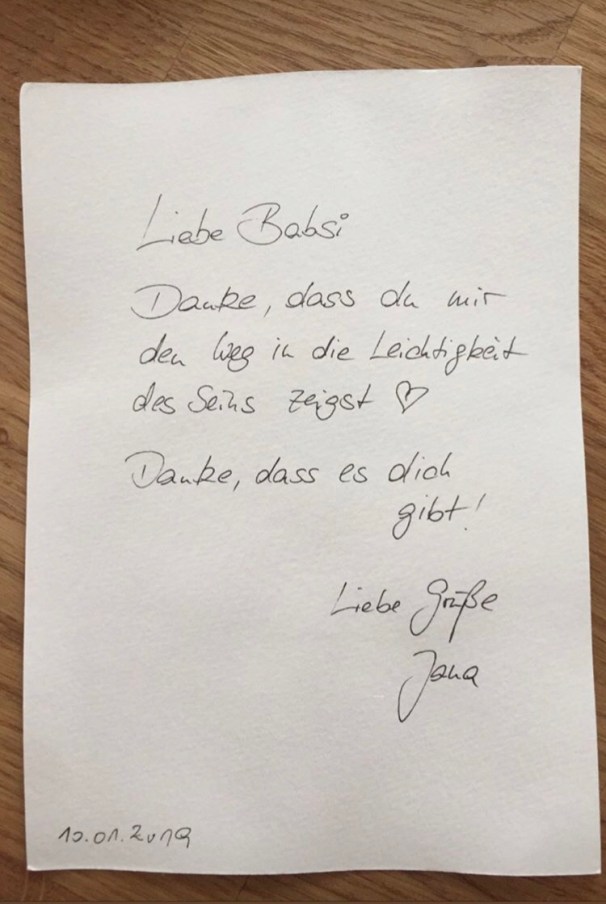 Liebe Babsi
Danke, dass du mir
den Weg in die Leichtigkeit
des Seins zeigst ♡
Danke, dass es dich
gibt!
Liebe Grüße
Jana
10.01.2019